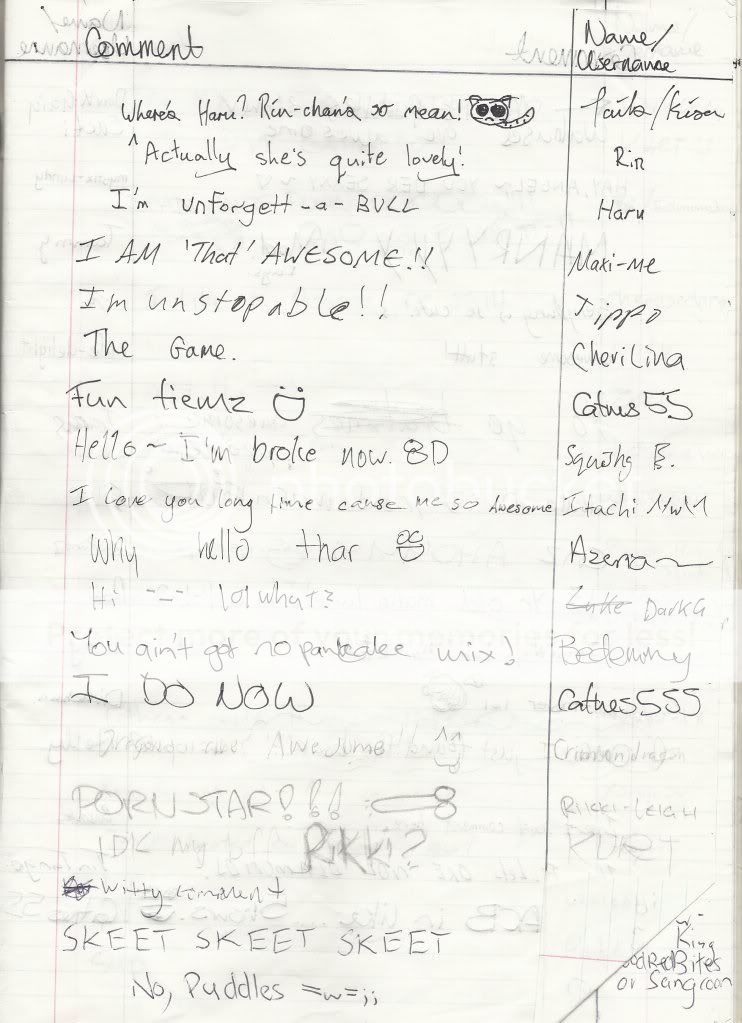 Comment Name/
Username
Where's Haru? Rin-chan's so mean!
^Actually she's quite lovely! Rin
I'm unforgett-a-BULL Haru
I AM 'That' AWESOME!! Maxi-me
I'm unstopable!! Xippo
The Game. Cherilina
Fun tiemz Catnes55
Hello~ I'm broke now. 8D
I love you long time cause me so Awesome Itachi
Why hello thar Azeria
Hi -_- lol what? Luke DarkG
You ain't got no pancake mix! Bedemmy
I DO NOW Catnes555
Awesume ^^ Crimson dragon
PORNSTAR!!! RIKKI-LEIGH
IDK my bff Rikki? KURT
Witty comment
SKEET SKEET SKEET King
RedBites
or Sangroon
No, Puddles =w=;;